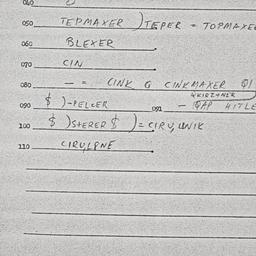 050 TEPMAXER ) TEPER = TOPMAXE
060 BLEXER
070 CIN
080 - = CINK G CINKMAXER
090 $ )-PELCER 091 - QAP HITLE
100 $ )STERER $ ) = CIRU,UNIK
110 CIRULPNE